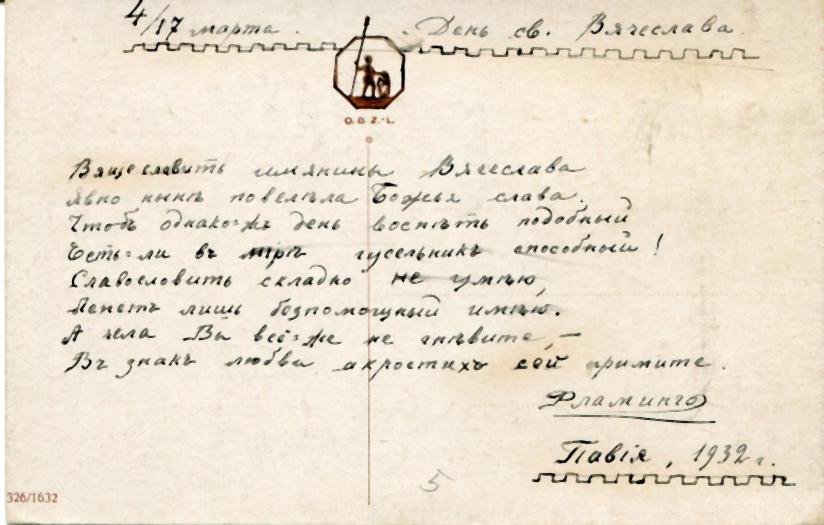 4/17 марта. День св. Вячеслава.
O. G. Z.-L.
Вящеславить имянины Вячеслава
Явно нынѣ повелѣла Божья слава.
Чтобъ однако-жъ день воспѣть подобный
Есть-ли въ мiрѣ гусельникъ способный!
Славословить складно не умѣю,
Лепетъ лишь безпомощный имѣю.
А чела Вы всё-же не гнѣвите, –
Въ знакъ любви акростихъ сей примите.
Фламинго
Павiя, 1932 г.
5
326/1632